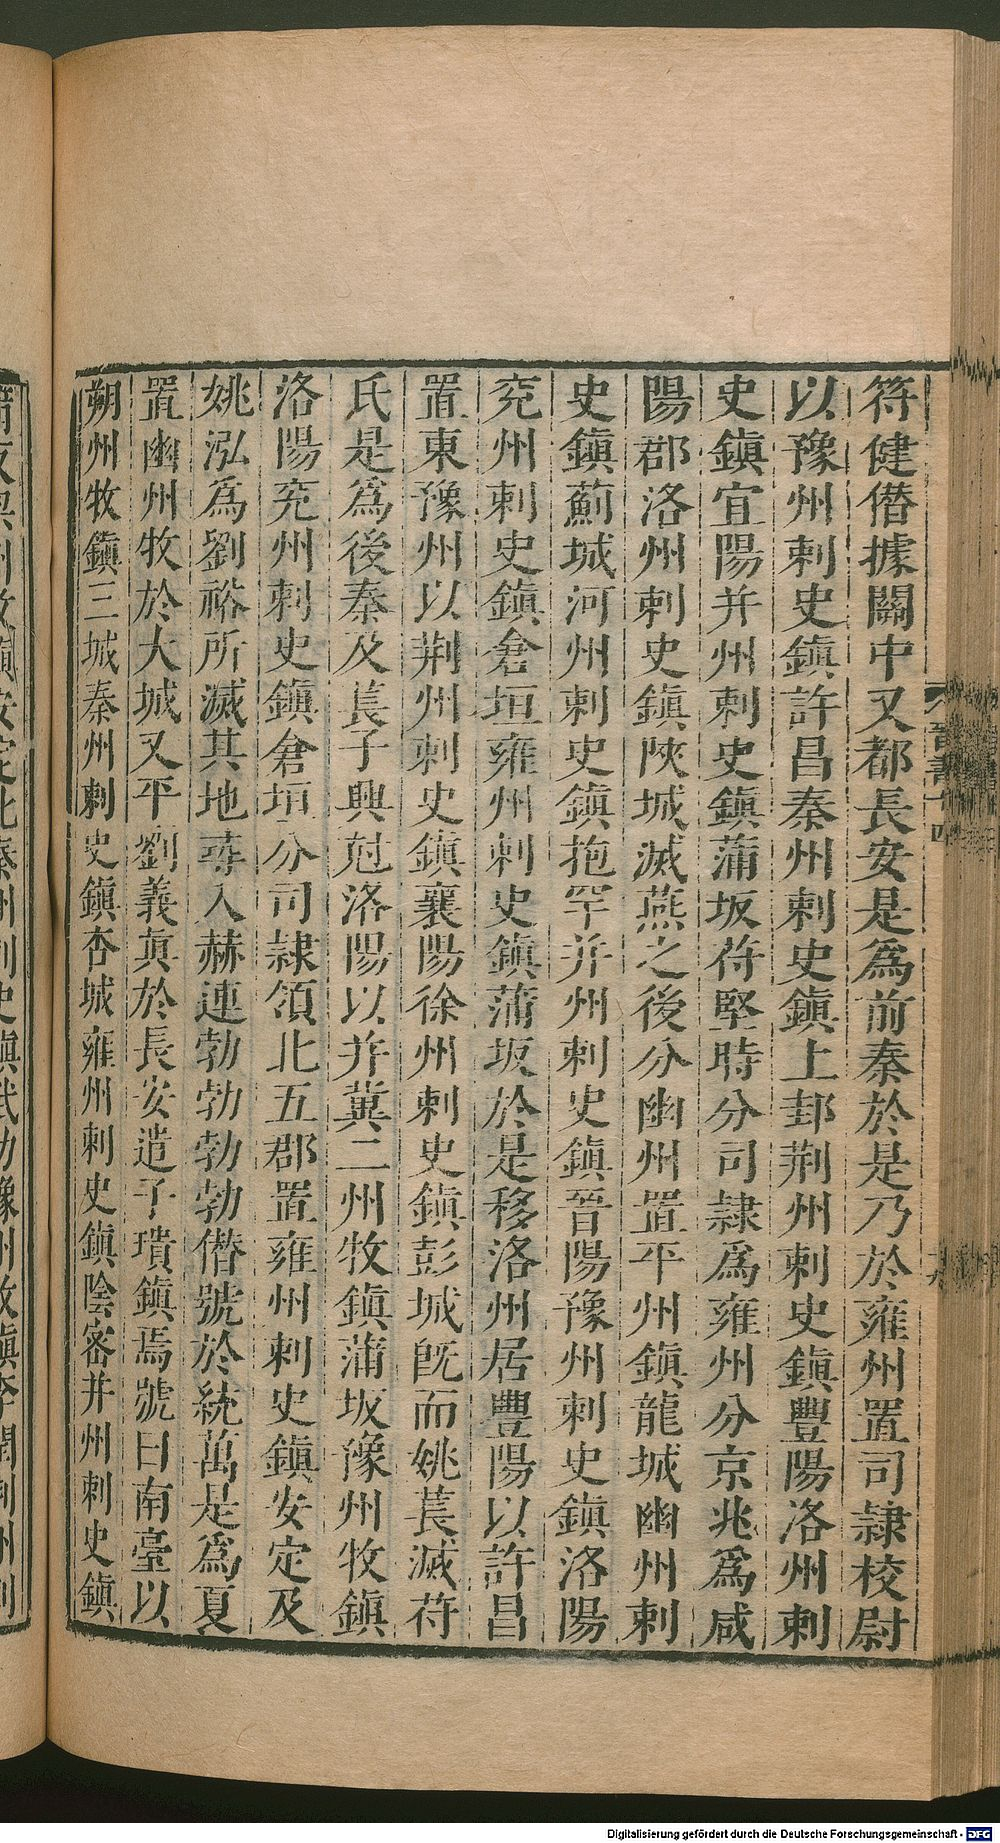 符健僭據關中又都長安是爲前秦於是乃於雍州置司隸校尉
以豫州刺史鎮許昌秦州刺史鎮上邽荆州刺史鎮豐陽洛州刺
史鎮宜陽并州刺史鎮蒲坂苻堅時分司隸爲雍州分京兆爲咸
陽郡洛州刺史鎮陝城滅燕之後分幽州置平州鎮龍城幽州刺
史鎮薊城河州刺史鎮抱罕并州刺史鎮晉陽豫州刺史鎮洛陽
兖州刺史鎮倉垣雍州刺史鎮蒲坂於是移洛州居豐陽以許昌
置東豫州以荆州刺史鎮襄陽徐州刺史鎮彭城旣而姚萇滅苻
氏是爲後秦及萇子興尅洛陽以并冀二州牧鎮蒲坂豫州牧鎮
洛陽兖州刺史鎮倉垣分司隸領北五郡置雍州刺史鎮安定及
姚泓爲劉裕所滅其地尋入赫連勃勃勃勃僭號於統萬是爲夏
置幽州牧於大城又平劉義真於長安遣子璝鎮焉號曰南臺以
朔州牧鎮三城秦州刺史鎮杏城雍州刺史鎮陰密并州刺史鎮
Digitalisierung gefördert durch die Deutsche Forschungsgemeinschaft - DFG